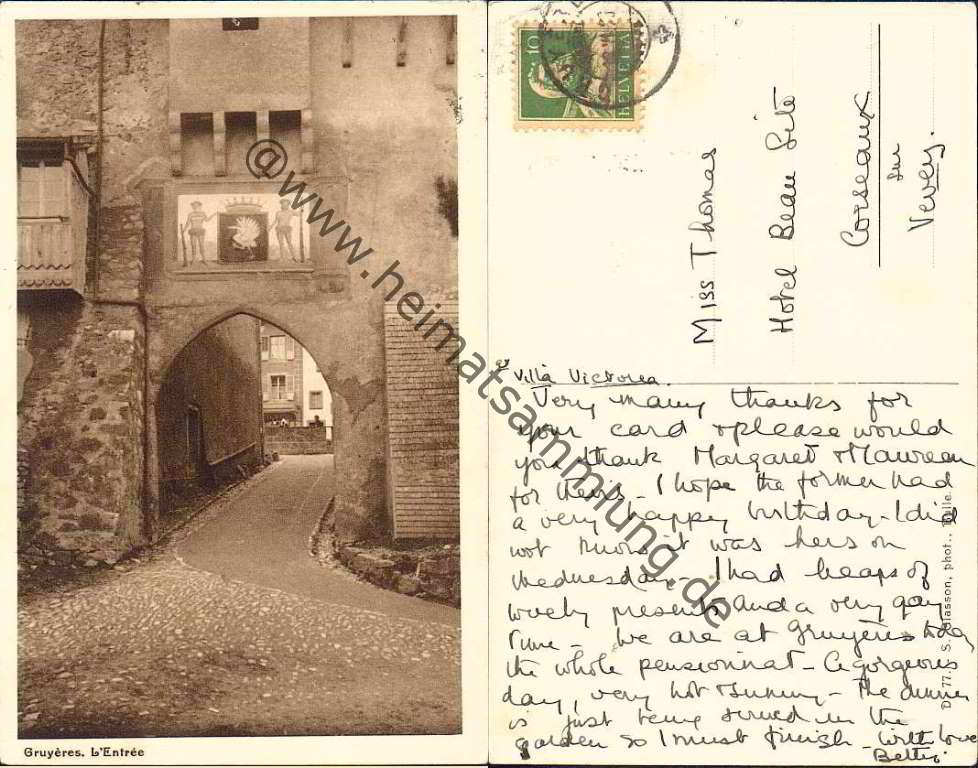 Gruyères. L'Entrée
10
HELVETIA
Miss Thomas
Hotel Beau Site
Corseaux
sur
Vevey.
Villa Victoria.
Very many thanks for
your card & please would
you thank Margaret & Maureen
for theirs - I hope the former had
a very happy birthday - I did
not know it was hers on
Wednesday - I had heaps of
lovely presents and a very gay
time - We are at Gruyères today
the whole pensionnat - A gorgeous
day, very hot & sunny - The dinner
is just being served in the
garden so I must finish - With love
Betty.
D 77. S. Glasson, phot., Bulle
@www.heimatsammlung.de